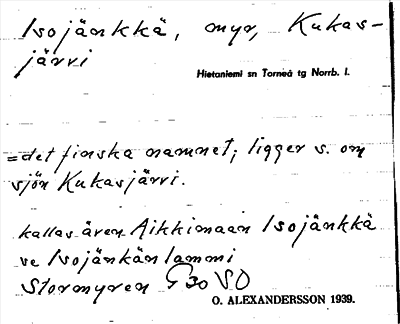 Isojänkkä, myr, Kukas-
järvi
Hietaniemi sn Torneå tg Norrb. l.
=det finska namnet; ligger s. om
sjön Kukasjärvi.
kallas även Aikkimaan Isojänkkä
se Isojänkänlammi
Stormyren G30 SO
O. ALEXANDERSSON 1939.